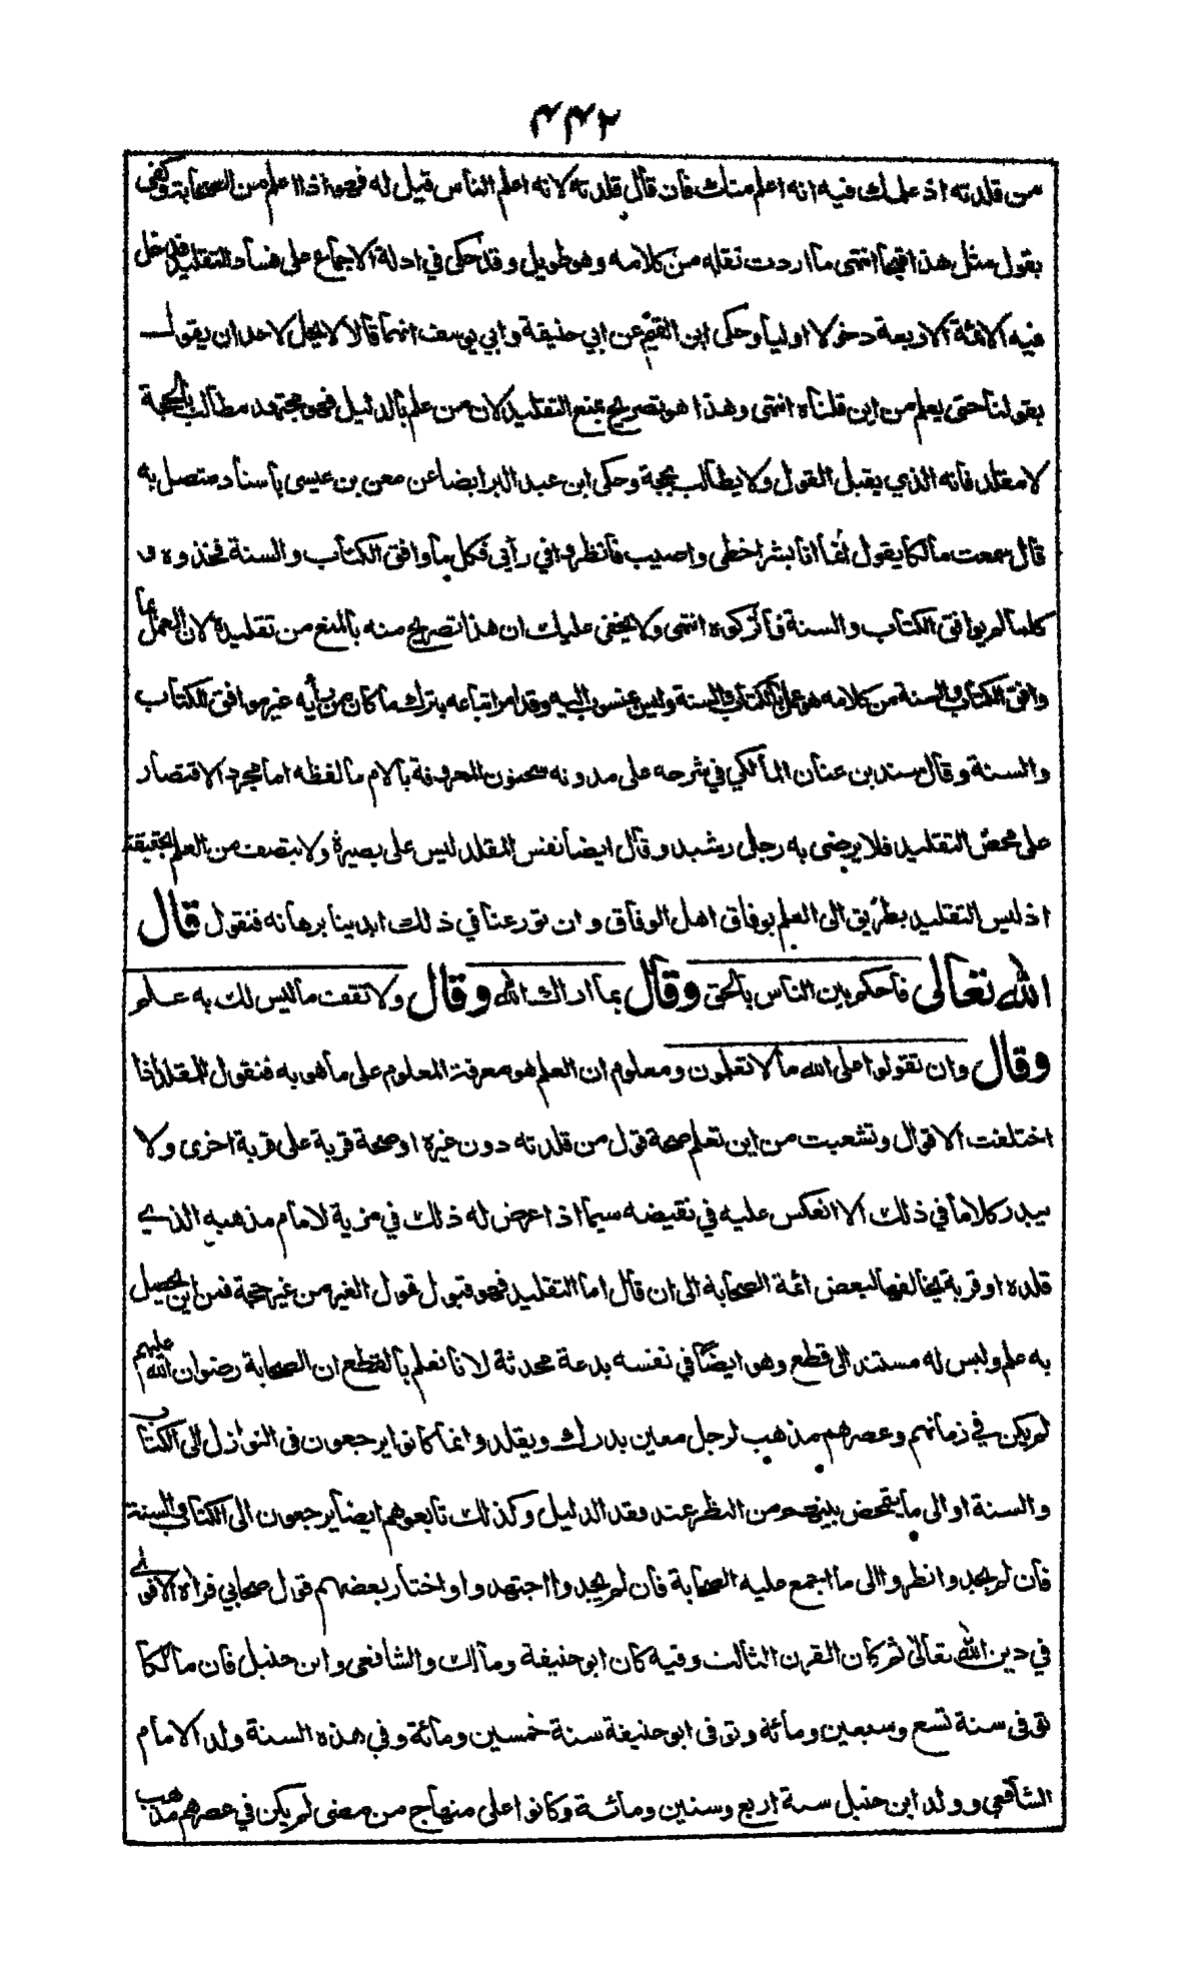 ۴۴۲
من قلدته اذ علمك فيه انه اعلم منك فان قال قلدته لانه اعلم الناس قيل له فهو اذا اعلم من الصحابة وكفى
بقول مثل هذا قبحا انتهى ما اردت نقله من كلامه وهو طويل وقد حكى في ادلة الاجماع على فساد التقليد فدخل
فيه الائمة الاربعة دخولا اوليا وحكى ابن القيم عن ابي حنيفة وابي يوسف انهما قالا لا يحل لاحد ان يقول
بقولنا حتى يعلم من اين قلناه انتهى وهذا هو تصريح بمنع التقليد لان من علم بالدليل فهو مجتهد مطالب بالحجة
لا مقلد فانه الذي يقبل القول ولا يطالب بحجة وحكى ابن عبد البر ايضا عن معن بن عيسى باسناد متصل به
قال سمعت مالكا يقول انما انا بشر اخطى واصيب فانظروا في رأيى فكل ما وافق الكتاب والسنة فخذوه و
كلما لم يوافق الكتاب والسنة فاتركوه انتهى ولا يخفى عليك ان هذا تصريح منه بالمنع من تقليده لان العمل بما
وافق الكتاب والسنة من كلامه هو عمل بالكتاب والسنة وليس بمنسوب اليه وقد امر اتباعه بترك ما كان من رأيه غير موافق للكتاب
والسنة وقال سند بن عنان المالكي في شرحه على مدونه سحنون المعروفة بالام ما لفظه اما مجرد الاقتصار
على محض التقليد فلا يرضى به رجل رشيد وقال ايضا نفس المقلد ليس على بصيرة ولا يتصف من العلم بحقيقة
اذ ليس التقليد بطريق الى العلم بوفاق اهل الوفاق وان نوزعنا في ذلك ابدينا برهانه فنقول قال
الله تعالى فاحكم بين الناس بالحق وقال بما اراك الله وقال ولا تقف ما ليس لك به علم
وقال وان تقولوا على الله ما لا تعلمون ومعلوم ان العلم هو معرفة المعلوم على ما هو به فنقول للمقلد اذا
اختلفت الاقوال وتشعبت من اين تعلم صحة قول من قلدته دون غيره او صحة قربة على قربة اخرى ولا
يبدر كلاما في ذلك الا انعكس عليه في نقيضه سيما اذا عرض له ذلك في مزية لامام مذهبه الذي
قلده او قربة يخالفها لبعض ائمة الصحابة الى ان قال اما التقليد فهو قبول قول الغير من غير حجة فمن اين يحصل
به علم وليس له مستند الى قطع وهو ايضا في نفسه بدعة محدثة لانا نعلم بالقطع ان الصحابة رضوان الله عليهم
لم يكن في زمانهم وعصرهم مذهب لرجل معين يدرك ويقلد وانما كانوا يرجعون فى النوازل الى الكتاب
والسنة او الى ما يتمحض بينهم من النظر عند فقد الدليل وكذلك تابعوهم ايضا يرجعون الى الكتاب والسنة
فان لم يجدوا نظروا الى ما اجمع عليه الصحابة فان لم يجدوا اجتهدوا واختار بعضهم قول صحابي فراه الاقوى
في دين الله تعالى ثم كان القرن الثالث وفيه كان ابو حنيفة ومالك والشافعي وابن حنبل فان مالكا
توفى سنة تسع وسبعين ومائة وتوفى ابو حنيفة سنة خمسين ومائة وفي هذه السنة ولد الامام
الشافعي وولد ابن حنبل سنة اربع وستين ومائة وكانوا على منهاج من مضى لم يكن في عصرهم مذهب